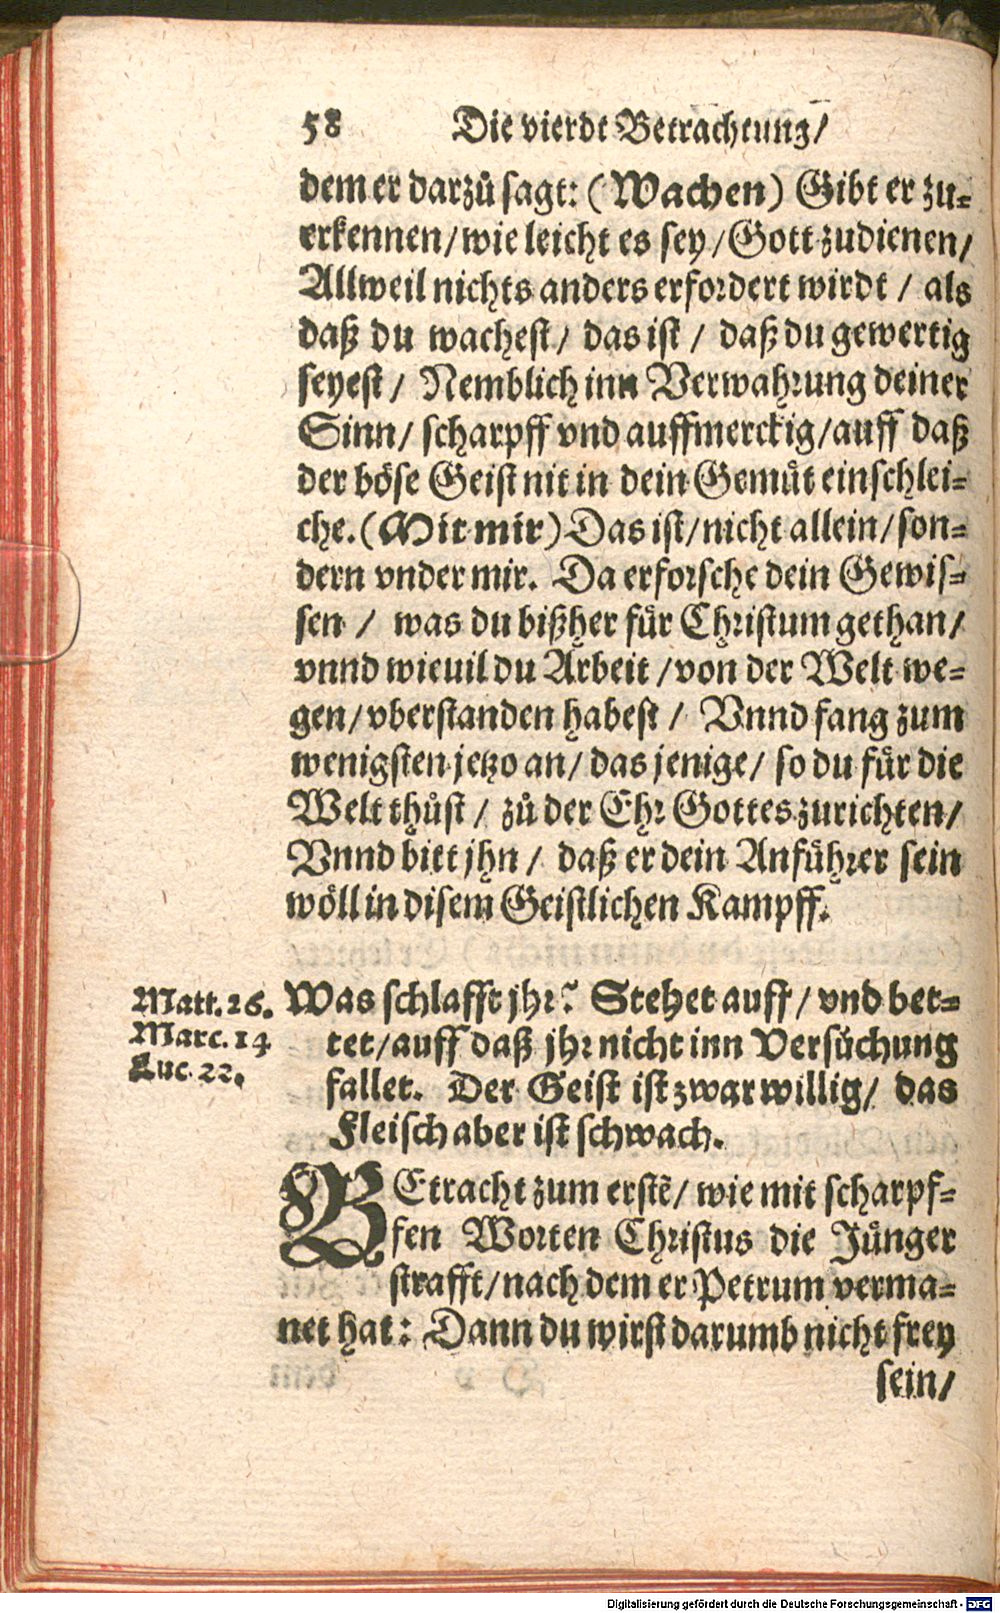 58 Die vierdt Betrachtung/
dem er darzů sagt: (Wachen) Gibt er zu-
erkennen/wie leicht es sey/Gott zudienen/
Allweil nichts anders erfordert wirdt / als
daß du wachest/ das ist / daß du gewertig
seyest / Nemblich inn Verwahrung deiner
Sinn/ scharpff vnd auffmerckig/auff daß
der böse Geist nit in dein Gemüt einschlei-
che. (Mit mir) Das ist/nicht allein/son-
dern vnder mir. Da erforsche dein Gewis-
sen / was du bißher für Christum gethan/
vnnd wieuil du Arbeit /von der Welt we-
gen/vberstanden habest / Vnnd fang zum
wenigsten jetzo an/ das jenige/ so du für die
Welt thůst / zů der Ehr Gottes zurichten/
Vnnd bitt jhn / daß er dein Anführer sein
wöll in disem Geistlichen Kampff.
Matt. 26. Was schlafft jhr? Stehet auff/ vnd bet-
Marc. 14 tet/auff daß jhr nicht inn Versůchung
Luc. 22. fallet. Der Geist ist zwar willig/ das
Fleisch aber ist schwach.
BEtracht zum erstē/ wie mit scharpf-
fen Worten Christus die Jünger
strafft/nach dem er Petrum verma-
net hat: Dann du wirst darumb nicht frey
sein/
Digitalisierung gefördert durch die Deutsche Forschungsgemeinschaft - DFG